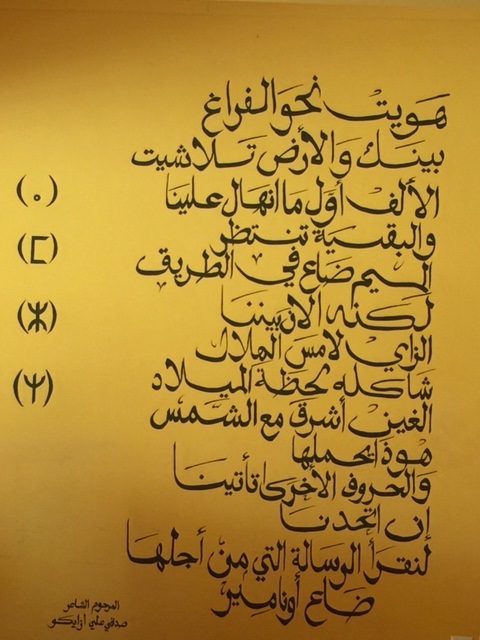 هويت نحو الفراغ
بينك والأرض تلاشيت
الألف أول ما انهال علينا (ⴰ)
والبقية تنتظر
الميم ضاع في الطريق (ⵎ)
لكنه الآن بيننا
الزاي لامس الهلال (ⵣ)
شاكله لحظة الميلاد
الغين أشرق مع الشمس (ⵖ)
هوذا يحملها
والحروف الأخرى تأتينا
إن اتحدنا
لنقرأ الرسالة التي من أجلها
ضاع أونامير
المرحوم الشاعر
صدقي علي أزايكو